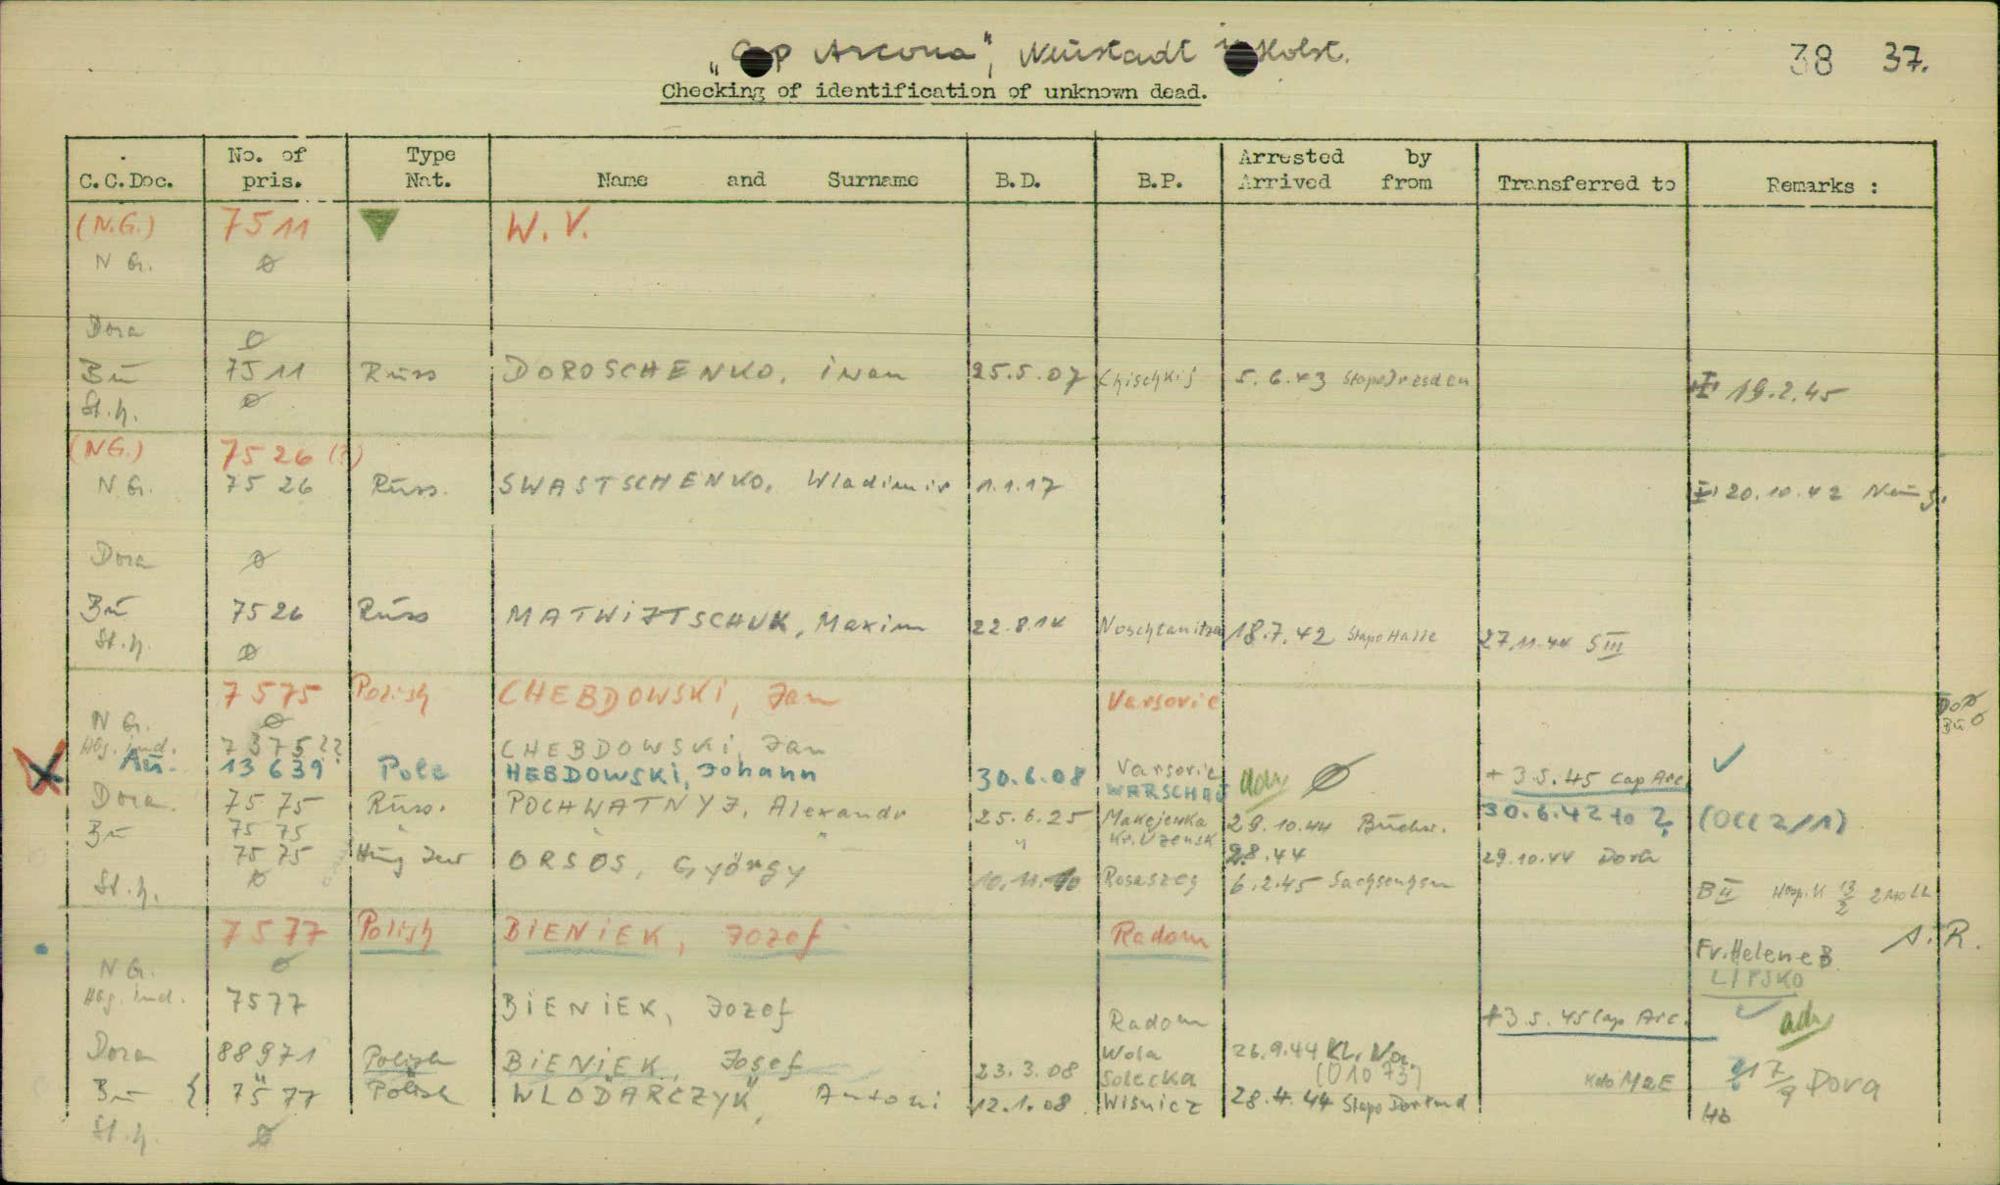 „Cap Arcona", Neustadt i. Holst. 38 37.
Checking of identification of unknown dead.
C.C.Doc. No. of pris. Type Nat. Name and Surname B.D. B.P. Arrested by Arrived from Transferred to Remarks :
(N.G.) 7511 W. V.
N G. ø
Dora ø
Bu 7511 Russ DOROSCHENKO, iwan 25.5.07 5.6.43 Stapo Dresden 19.2.45
St.h. ø
(NG.) 7526 (?)
N G. 7526 Russ. SWASTSCHENKO, Wladimir 1.1.17 20.10.42 Neug.
Dora ø
Bu 7526 Russ MATWIJTSCHUK, Maxim 22.8.14 18.7.42 Stapo Halle 27.11.44 SIII
St.h. ø
7575 Polish CHEBDOWSKi, Jan Varsovie
N G. ø Dora ø
Bu ø
Hbg. ind. 7375?? CHEBDOWSKi, Jan Varsovie + 3.5.45 Cap Arc.
Au. 13639? Pole HEBDOWSKi, Johann 30.6.08 WARSCHAU adv ø 30.6.42 to ? (OCC 2/1)
Dora. 7575 Russ. POCHWATNYJ, Alexandr 25.6.25 Makejewka 29.10.44 Buchw.
Bu 7575 " " " " 28.44 29.10.44 Dora
7575 Hung Jew ORSOS, György 10.11.10 6.2.45 Sachsenhsn BII
St.h. ø
7577 Polish BiENiEK, Jozef Radom Fr. Helene B. A.R.
LIPSKO
N G. ø
Hbg. ind. 7577 BiENiEK, Jozef Radom +3.5.45 Cap Arc. adv
Dora 88971 Polish BiENiEK, Josef 23.3.08 Wola Solecka 26.9.44 KL. Na. Kdo M2E Dora
Bu { 7577 Polish WLODARCZYK, Antoni 12.1.08 Wisnicz 28.4.44 Stapo Dortmd
St.h. ø